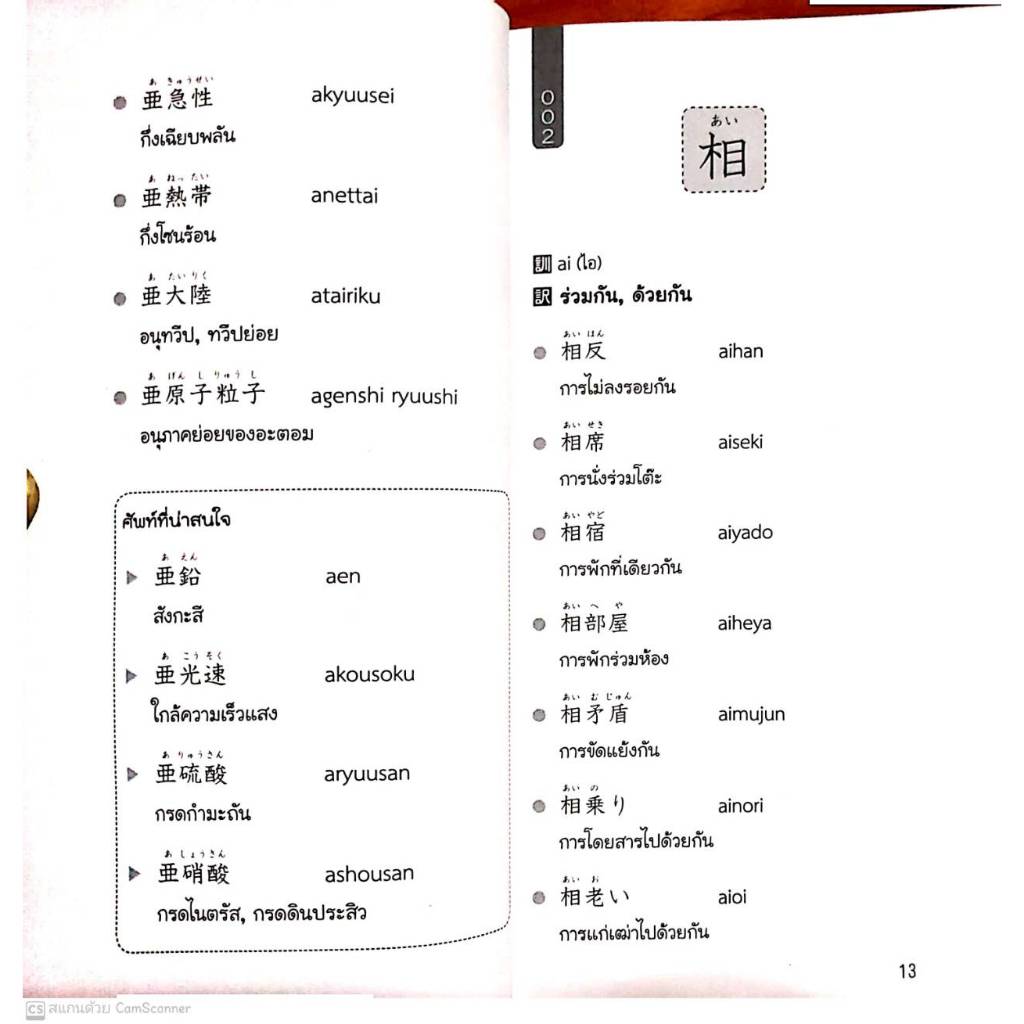 あ きゅうせい
亜急性 akyuusei
กึ่งเฉียบพลัน
あ ねっ たい
亜熱帯 anettai
กึ่งโซนร้อน
あ たい りく
亜大陸 atairiku
อนุทวีป, ทวีปย่อย
あ げん し りゅう し
亜原子粒子 agenshi ryuushi
อนุภาคย่อยของอะตอม
ศัพท์ที่น่าสนใจ
あ えん
亜鉛 aen
สังกะสี
あ こう そく
亜光速 akousoku
ใกล้ความเร็วแสง
あ りゅうさん
亜硫酸 aryuusan
กรดกำมะถัน
あ しょうさん
亜硝酸 ashousan
กรดไนตรัส, กรดดินประสิว
002
あい
相
訓 ai (ไอ)
訳 ร่วมกัน, ด้วยกัน
あい はん
相反 aihan
การไม่ลงรอยกัน
あい せき
相席 aiseki
การนั่งร่วมโต๊ะ
あい やど
相宿 aiyado
การพักที่เดียวกัน
あい へ や
相部屋 aiheya
การพักร่วมห้อง
あい む じゅん
相矛盾 aimujun
การขัดแย้งกัน
あい の
相乗り ainori
การโดยสารไปด้วยกัน
あい お
相老い aioi
การแก่เฒ่าไปด้วยกัน
13
CS สแกนด้วย CamScanner